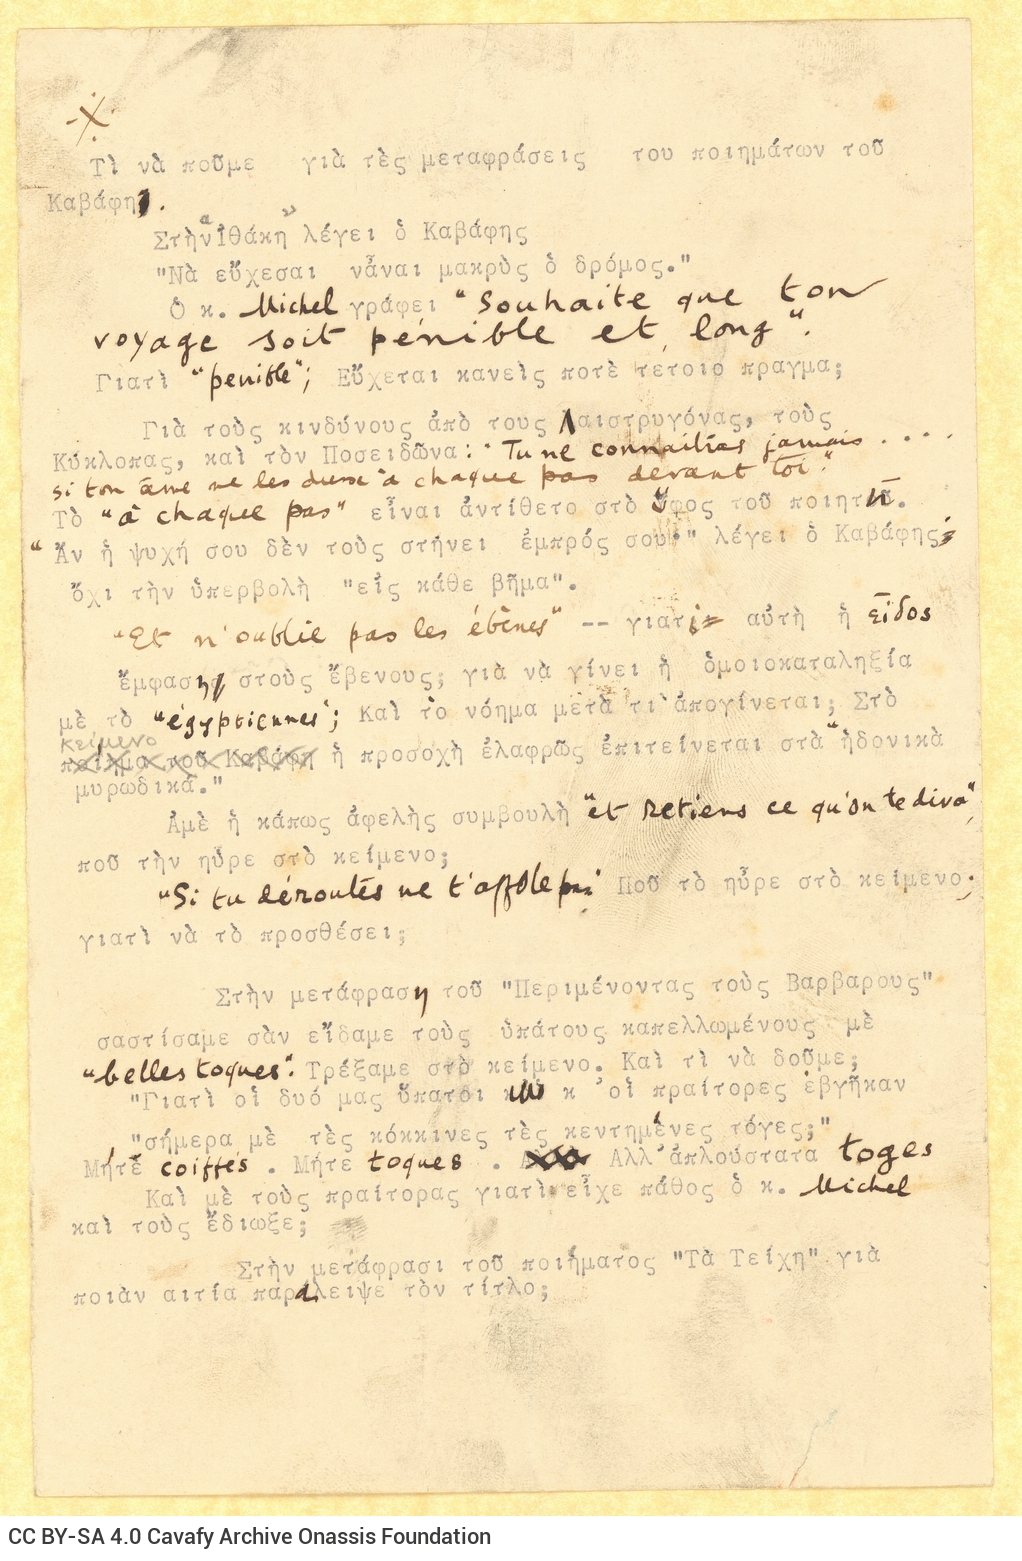 Τὶ νὰ ποῦμε γιὰ τὲς μεταφράσεις του ποιημάτων τοῦ
Καβάφη.
Στὴν "Ἰθάκη" λέγει ὁ Καβάφης
"Νὰ εὔχεσαι νἆναι μακρὺς ὁ δρόμος."
Ὁ κ. Michel γράφει "Souhaite que ton
voyage soit pénible et long".
Γιατὶ "penible"; Εὔχεται κανεὶς ποτὲ τέτοιο πραγμα;
Γιὰ τοὺς κινδύνους ἀπὸ τους Λαιστρυγόνας, τοὺς
Κύκλοπας, καὶ τὸν Ποσειδῶνα: "Tu ne connaîtras jamais . . . .
si ton âme ne les dresse à chaque pas devant toi".
Τὸ "à chaque pas" εἶναι ἀντίθετο στὸ ὕφος τοῦ ποιητῆ.
"Ἂν ἡ ψυχή σου δὲν τοὺς στήνει ἐμπρός σου" λέγει ὁ Καβάφης;
ὄχι τὴν ὑπερβολὴ "εἰς κάθε βῆμα".
"Et n'oublie pas les ébènes" -- γιατὶ αὐτὴ ἡ εἶδος
ἔμφαση στοὺς ἔβενους; γιὰ νὰ γίνει ἡ ὁμοιοκαταληξία
μὲ τὸ "égyptiennes"; Καὶ τὸ νόημα μετὰ τι ἀπογίνεται; Στὸ
κείμενο
ποίημα τοῦ Καβάφη ἡ προσοχὴ ἐλαφρῶς ἐπιτείνεται στὰ "ἡδονικὰ
μυρωδικά."
Ἀμὲ ἡ κάπως ἀφελὴς συμβουλὴ "et retiens ce qu'on te dira",
ποῦ τὴν ηὗρε στὸ κείμενο;
"Si tu déroutes ne t'affole pas" Ποῦ τὸ ηὗρε στὸ κείμενο;
γιατὶ νὰ τὸ προσθέσει;
Στὴν μετάφραση τοῦ "Περιμένοντας τοὺς Βαρβαρους"
σαστίσαμε σὰν εἴδαμε τοὺς ὑπάτους καπελλωμένους μὲ
"belles toques". Τρέξαμε στὸ κείμενο. Καὶ τὶ νὰ δοῦμε;
"Γιατὶ οἱ δυό μας ὕπατοι κ' οἱ πραίτορες ἐβγῆκαν
"σήμερα μὲ τὲς κόκκινες τὲς κεντημένες τόγες;"
Μήτε coiffés . Μήτε toques . Ἀλλ' ἁπλούστατα toges
Καὶ μὲ τοὺς πραίτορας γιατὶ εἶχε πάθος ὁ κ. Michel
καὶ τοὺς ἔδιωξε;
Στὴν μετάφρασι τοῦ ποιήματος "Τὰ Τείχη" γιὰ
ποιὰν αιτία παράλειψε τὸν τίτλο;
CC BY-SA 4.0 Cavafy Archive Onassis Foundation